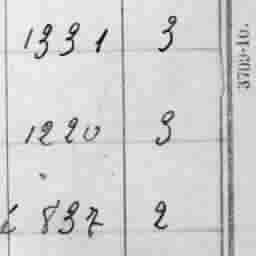 1331 3
1220 3
837 2
3709-10.